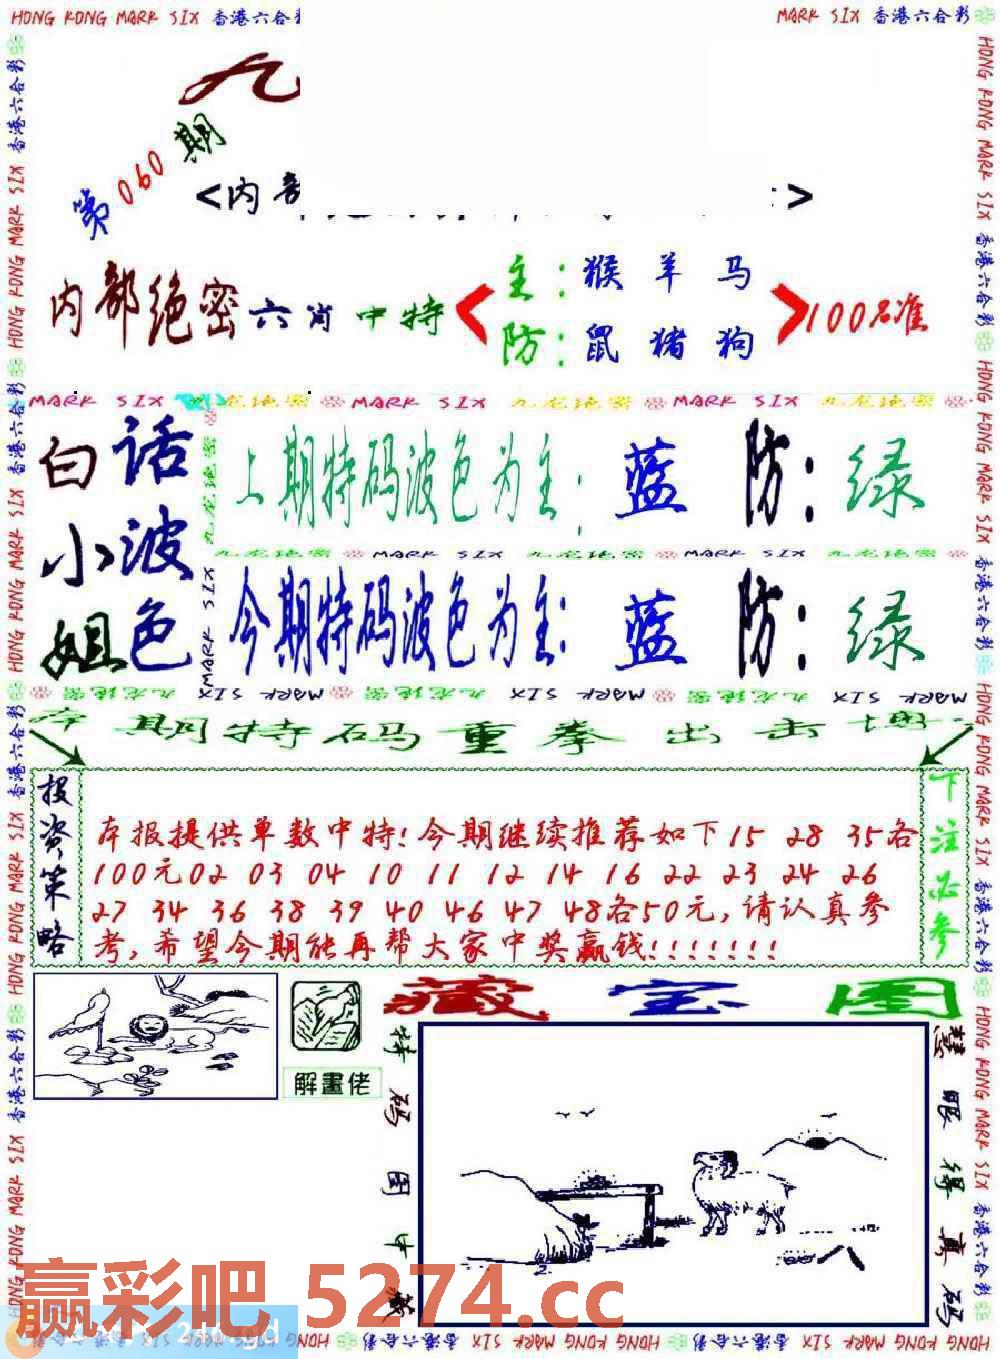 HONG KONG MARK SIX 香港六合彩
MARK SIX 香港六合彩
九
第060期
<内部
>
内部绝密六肖中特
主:猴 羊 马
防:鼠 猪 狗
100%准
MARK SIX 九龙绝密 MARK SIX 九龙绝密 MARK SIX 九龙绝密
白小姐
话波色
上期特码波色为主: 蓝 防: 绿
九龙绝密 MARK SIX 九龙绝密 MARK SIX 九龙绝密
今期特码波色为主: 蓝 防: 绿
本期特码重拳出击
投资策略
本报提供单数中特!今期继续推荐如下15 28 35各
100元02 03 04 10 11 12 14 16 22 23 24 26
27 34 36 38 39 40 46 47 48各50元,请认真参
考,希望今期能再帮大家中奖赢钱!!!!!!!
下注必参
解畫佬
藏宝图
特码图中藏
慧眼得真码
赢彩吧 5274.cc